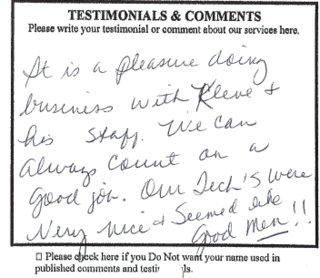 TESTIMONIALS & COMMENTS
Please write your testimonial or comment about our services here.
It is a pleasure doing
business with Kleve &
his staff. We can
always count on a
Good job. Our Tech's were
Very nice & Seemed like
Good Men!!
☐ Please check here if you Do Not want your name used in
published comments and